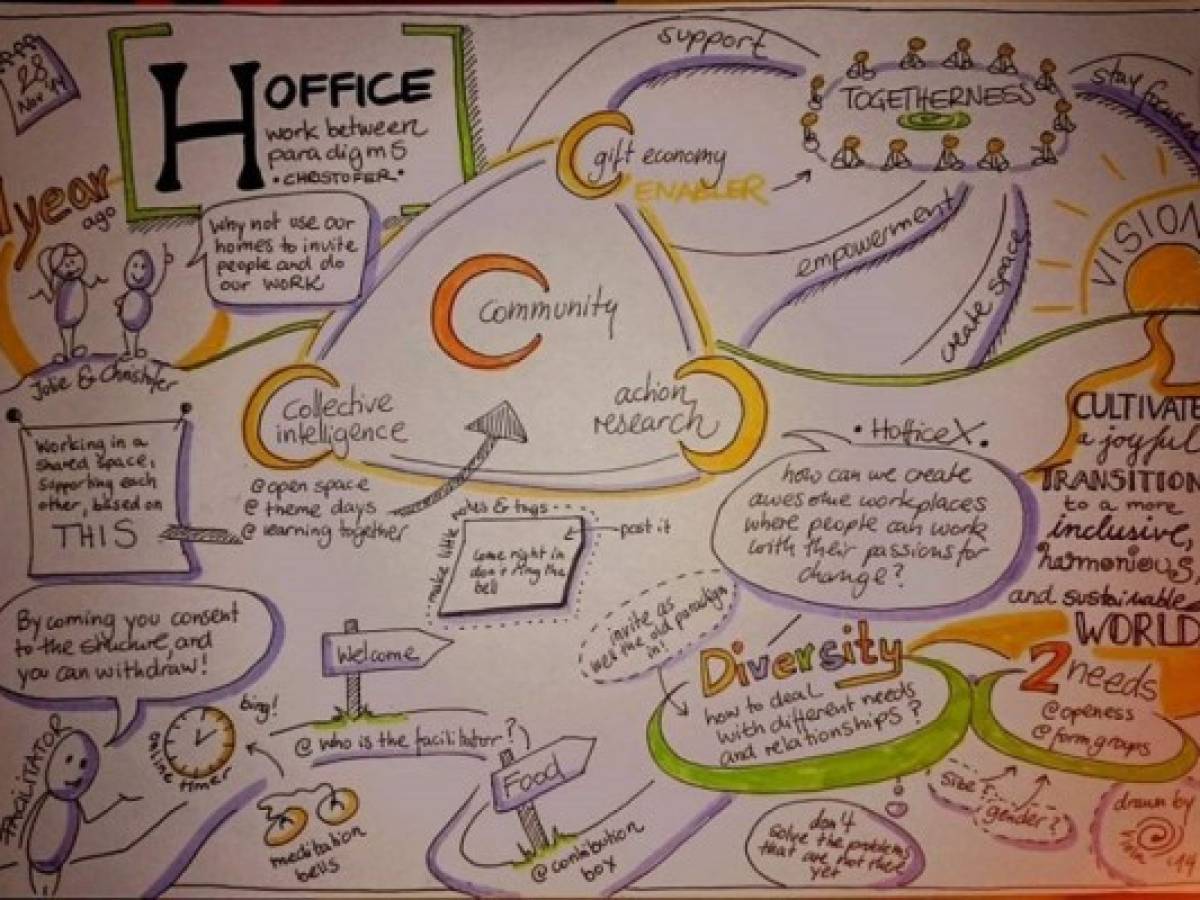 28
Nov '14
H OFFICE
work between
paradigms
• CHRISTOFER •
1 year
ago
Why not use our
homes to invite
people and do
our WORK
Jolie & Christofer
support
gift economy
ENABLER
TOGETHERNESS
stay focused
empowerment
create space
VISION
community
collective
intelligence
action
research
@ open space
@ theme days
@ learning together
Working in a
shared space,
supporting each
other, based on
THIS
• HofficeX •
how can we create
awesome workplaces
where people can work
with their passions for
change?
CULTIVATE
a joyful
TRANSITION
to a more
inclusive,
harmonious,
and sustainable
WORLD
make little notes & tags
post it
come right in
don't ring the
bell
By coming you consent
to the structure, and
you can withdraw!
#FACILITATOR
online
timer
bing!
meditation
bells
Welcome
@ who is the facilitator?
Food
@ contribution
box
invite as
well the old paradigm
in!
Diversity
how to deal
with different needs
and relationships?
2 needs
@ openess
@ form groups
size?
gender?
don't
solve the problems
that are not there
yet
drawn by
'14